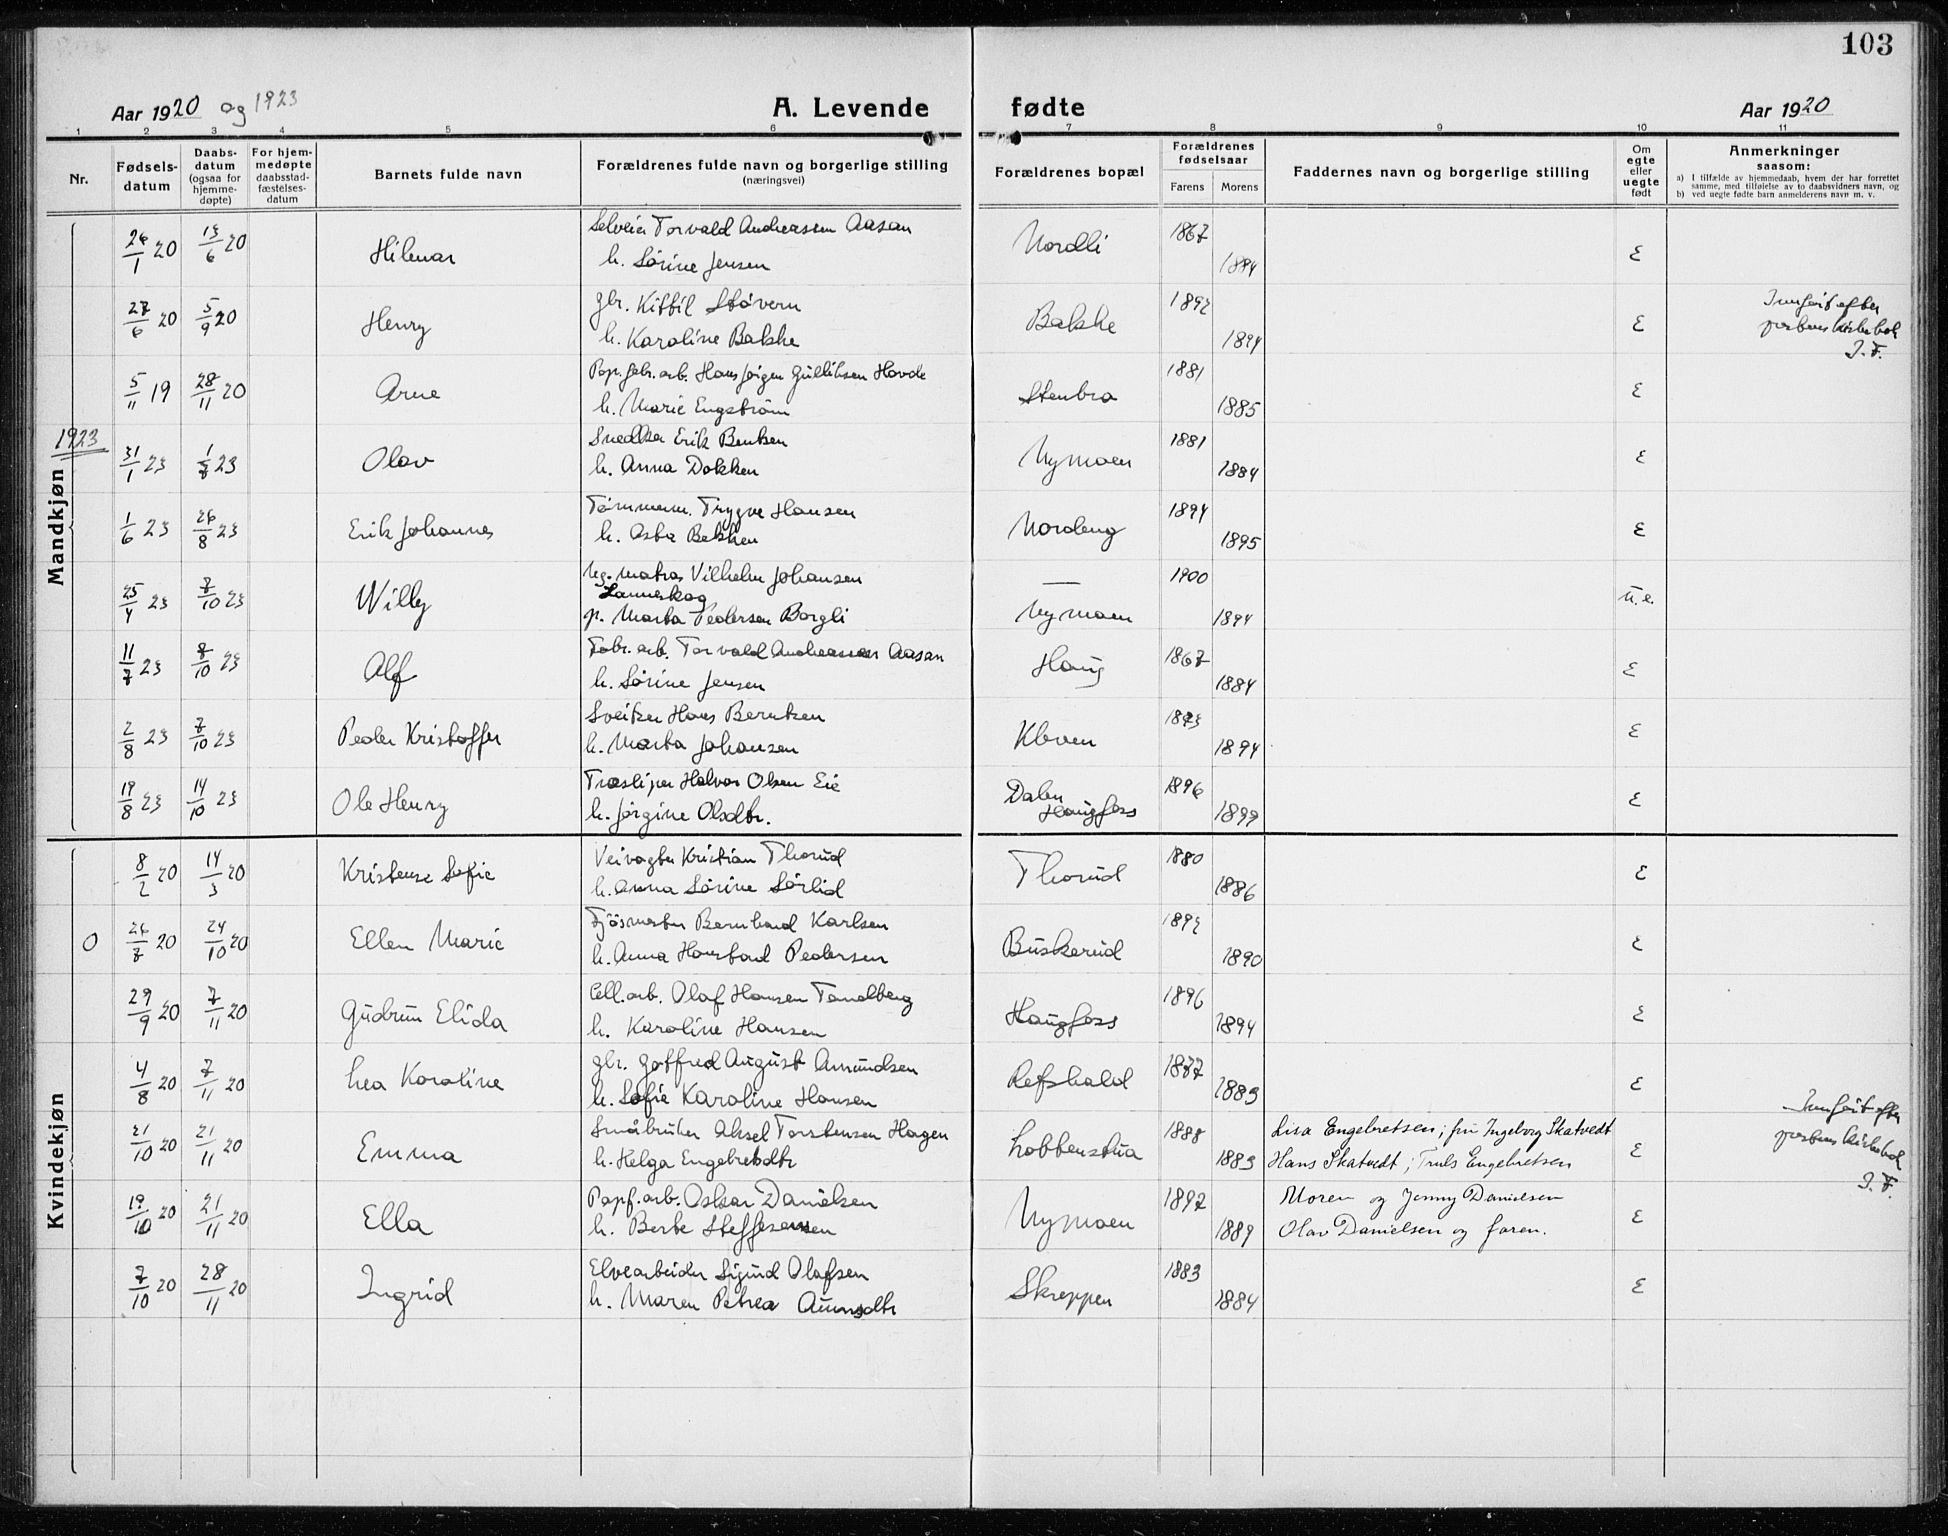 103
Aar 1920 og 1923
A. Levende fødte
Aar 1920
1 2 3 4 5 6 7 8 9 10 11
Nr.
Fødselsdatum
Daabsdatum (ogsaa for hjemmedøpte)
For hjemmedøpte daabsstadfæstelsesdatum
Barnets fulde navn
Forældrenes fulde navn og borgerlige stilling (næringsvei)
Forældrenes bopæl
Forældrenes fødselsaar
Farens Morens
Faddernes navn og borgerlige stilling
Om egte eller uegte født
Anmerkninger saasom:
a) I tilfælde av hjemmedaab, hvem der har forrettet samme, med tilføielse av to daabsvidners navn, og
b) ved uegte fødte barn anmelderens navn m. v.
Mandkjøn
26/1 20 13/6 20 Hilmar Selveier Torvald Andreassen Aasan Nordli 1867 E
h. Sørine Jensen 1884
27/6 20 5/9 20 Henry gbr. Kittil Støvern Bakke 1892 E
h. Karoline Bakke 1894
Innført efter
prestens kirkebok
J. F.
5/11 19 28/11 20 Arne Pap.fabr.arb. Hans Jørgen Gulliksen Hovde Stenbro 1881 E
h. Marie Engstrøm 1885
1923
31/1 23 1/7 23 Olav Snedker Erik Bentsen Nymoen 1881 E
h. Anna Dokken 1884
1/6 23 26/8 23 Erik Johannes Tømmerm. Trygve Hansen Nordeng 1894 E
h. Asta Bakken 1895
25/4 23 7/10 23 Willy Ug. matros Vilhelm Johansen — 1900 U.e.
Lanneskog
p. Marta Pedersen Borgli Nymoen 1894
11/7 23 7/10 23 Alf Fabr.arb. Torvald Andreassen Aasan Haug 1867 E
h. Sørine Jensen 1884
2/8 23 7/10 23 Peder Kristoffer Sveiser Hans Berntsen Kleven 1893 E
h. Marta Johansen 1894
19/8 23 14/10 23 Ole Henry Træsliper Halvor Olsen Eie Dalen 1896 E
h. Jørgine Olsdtr. Haugfoss 1899
Kvindekjøn
8/2 20 14/3 20 Kristense Sofie Veivogter Kristian Thorud Thorud 1880 E
h. Anna Sørine Sørlid 1886
0 26/7 20 24/10 20 Ellen Marie Fjøsmester Bernhard Karlsen Buskerud 1892 E
h. Anna Pedersen 1890
29/9 20 7/11 20 Gudrun Elida Cell.arb. Olaf Hansen Tandberg Haugfoss 1896 E
h. Karoline Hansen 1894
4/8 20 7/11 20 Lea Karoline gbr. Gotfred August Amundsen Refshald 1877 E
h. Sofie Karoline Hansen 1883
21/10 20 21/11 20 Emma Småbruker Aksel Torstensen Hagen Lobbenstua 1888 Lisa Engebretsen; fru Ingeborg Skatvedt E
h. Helga Engebretsdtr 1883 Hans Skatvedt; Truls Engebretsen
Innført efter
prestens kirkebok
J. F.
19/10 20 21/11 20 Ella Papf.arb. Oskar Danielsen Nymoen 1892 Moren og Jenny Danielsen E
h. Berte Steffensen 1889 Olav Danielsen og faren.
7/10 20 28/11 20 Ingrid Elvearbeider Sigurd Olafsen Skreppen 1883 E
h. Maren Petrea 1884